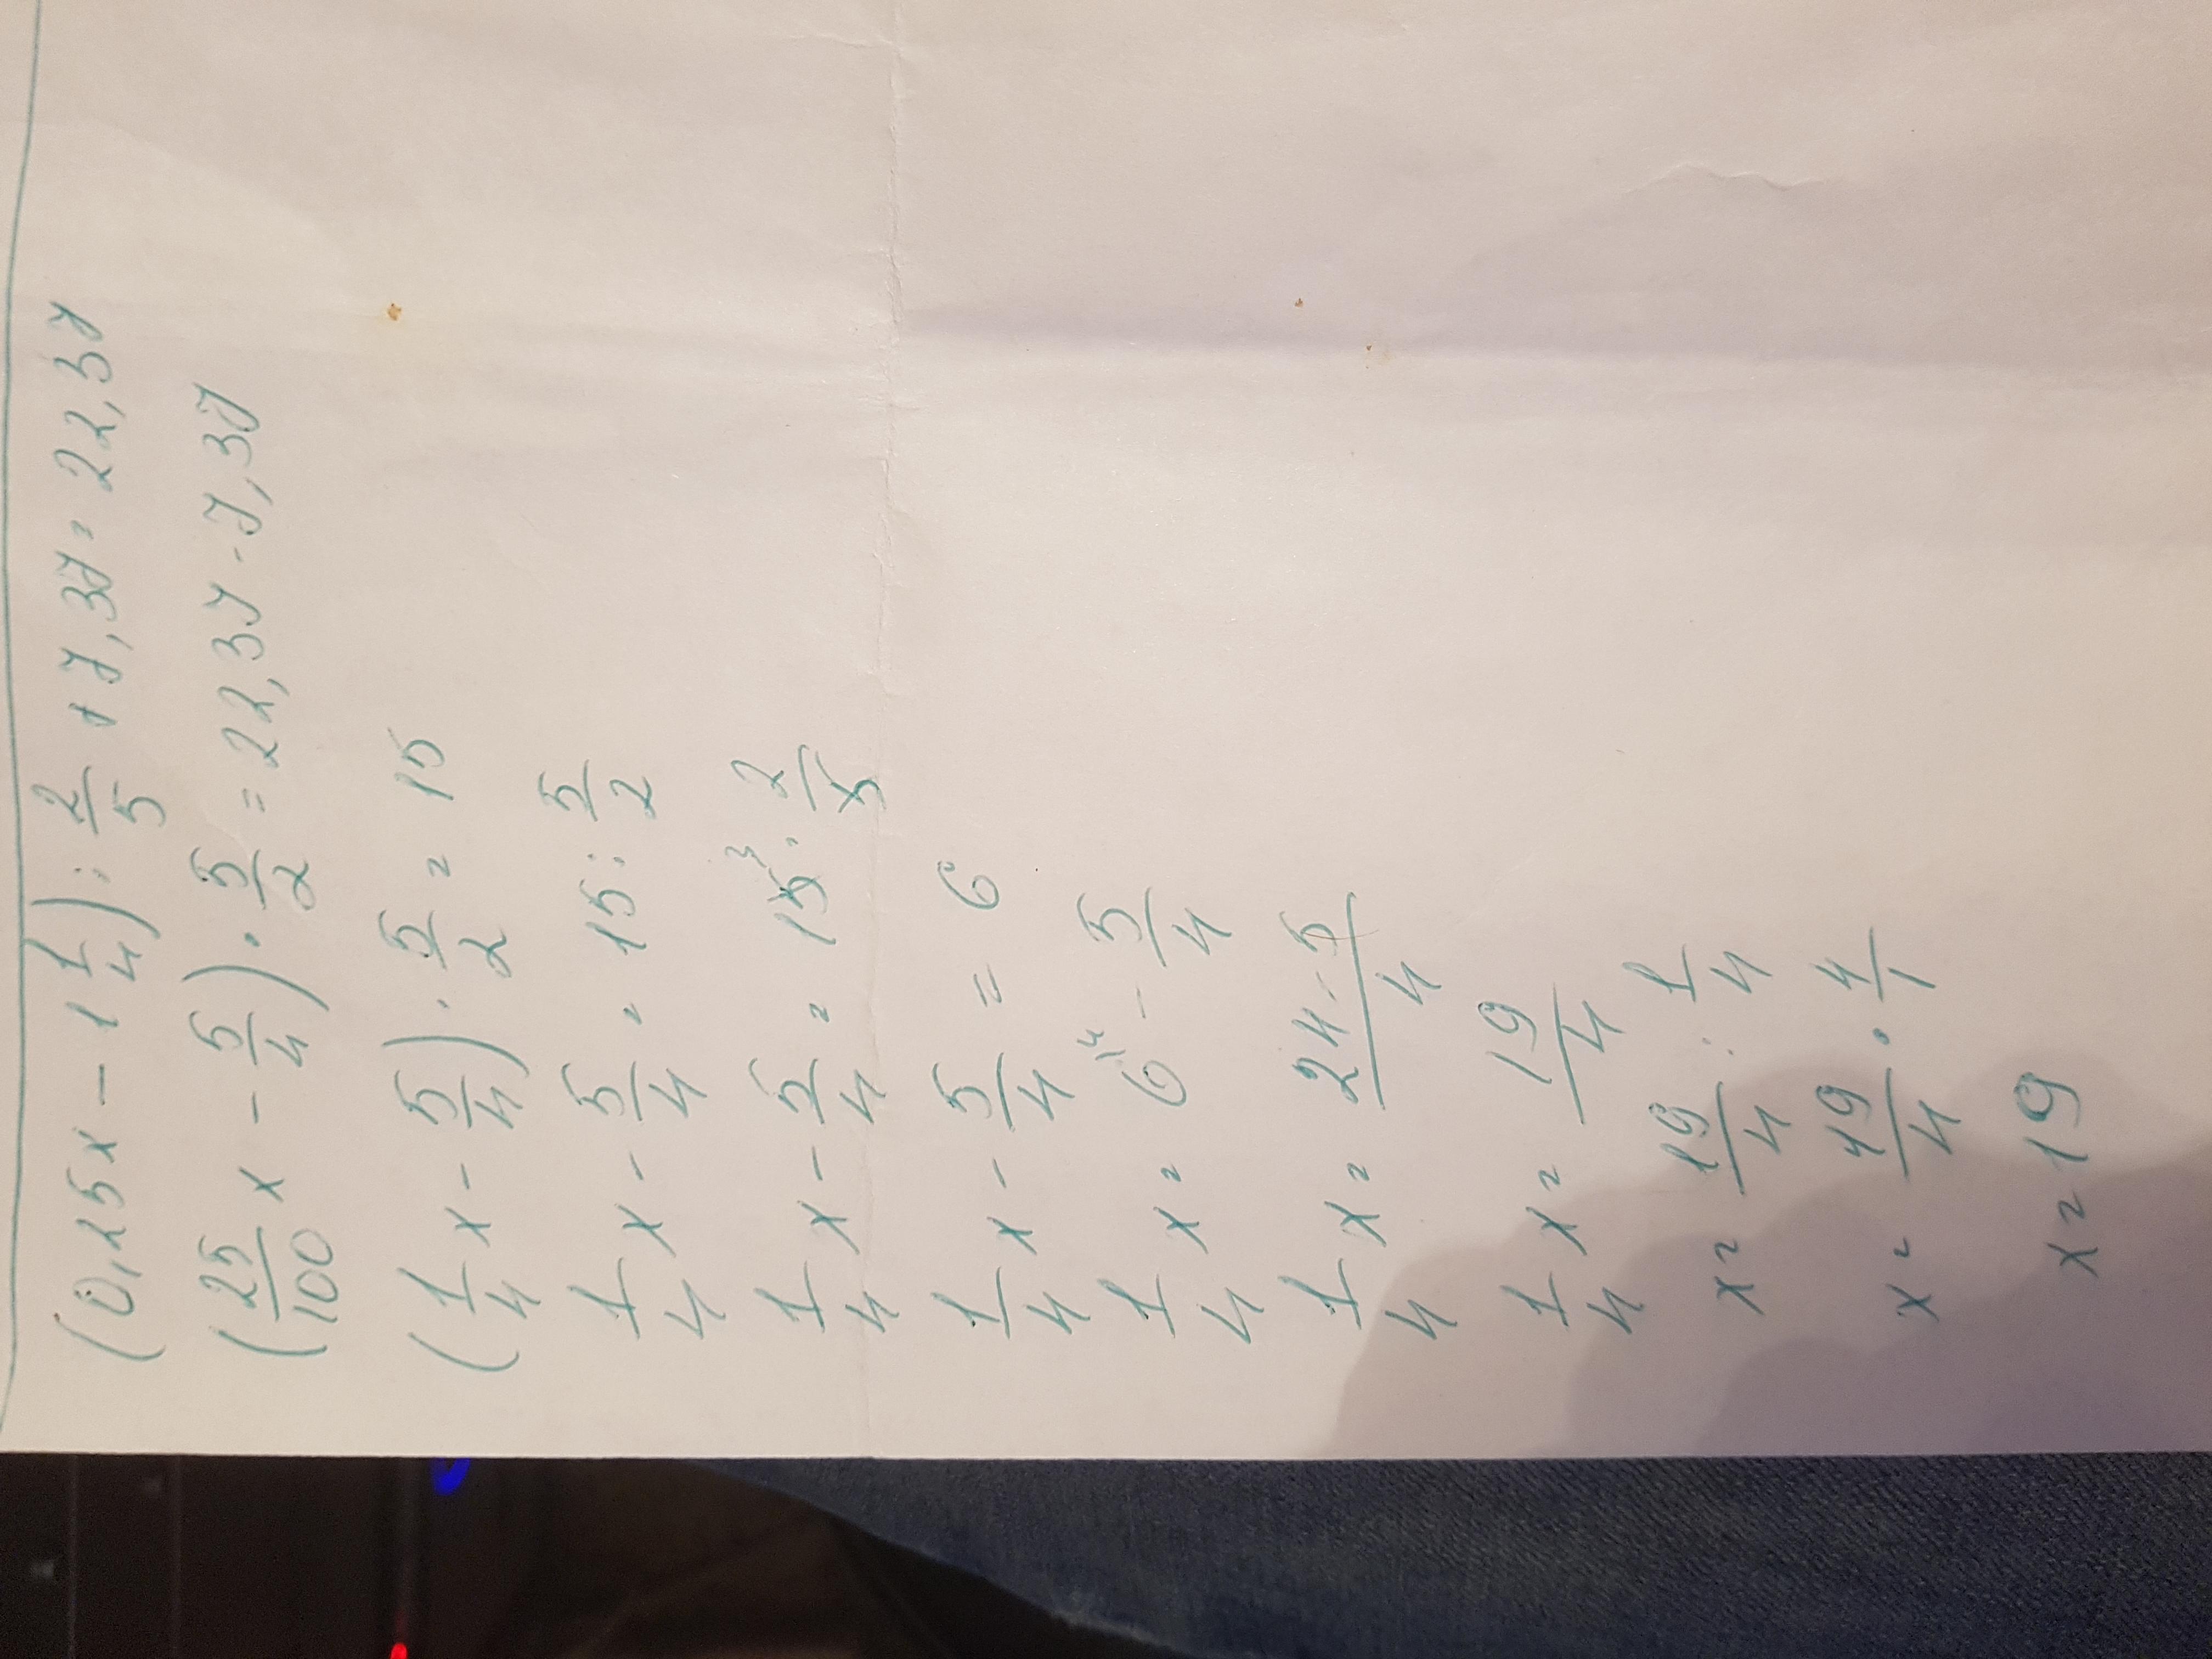 (0,25x - 1 1/4) : 2/5 + 7,37 = 22,37
(25/100 x - 5/4) · 5/2 = 22,37 - 7,37
(1/4 x - 5/4) · 5/2 = 15
1/4 x - 5/4 = 15 : 5/2
1/4 x - 5/4 = 15³ · 2/5
1/4 x - 5/4 = 6
1/4 x = 6\4 - 5/4
1/4 x = (24 - 5)/4
1/4 x = 19/4
x = 19/4 : 1/4
x = 19/4 · 4/1
x = 19